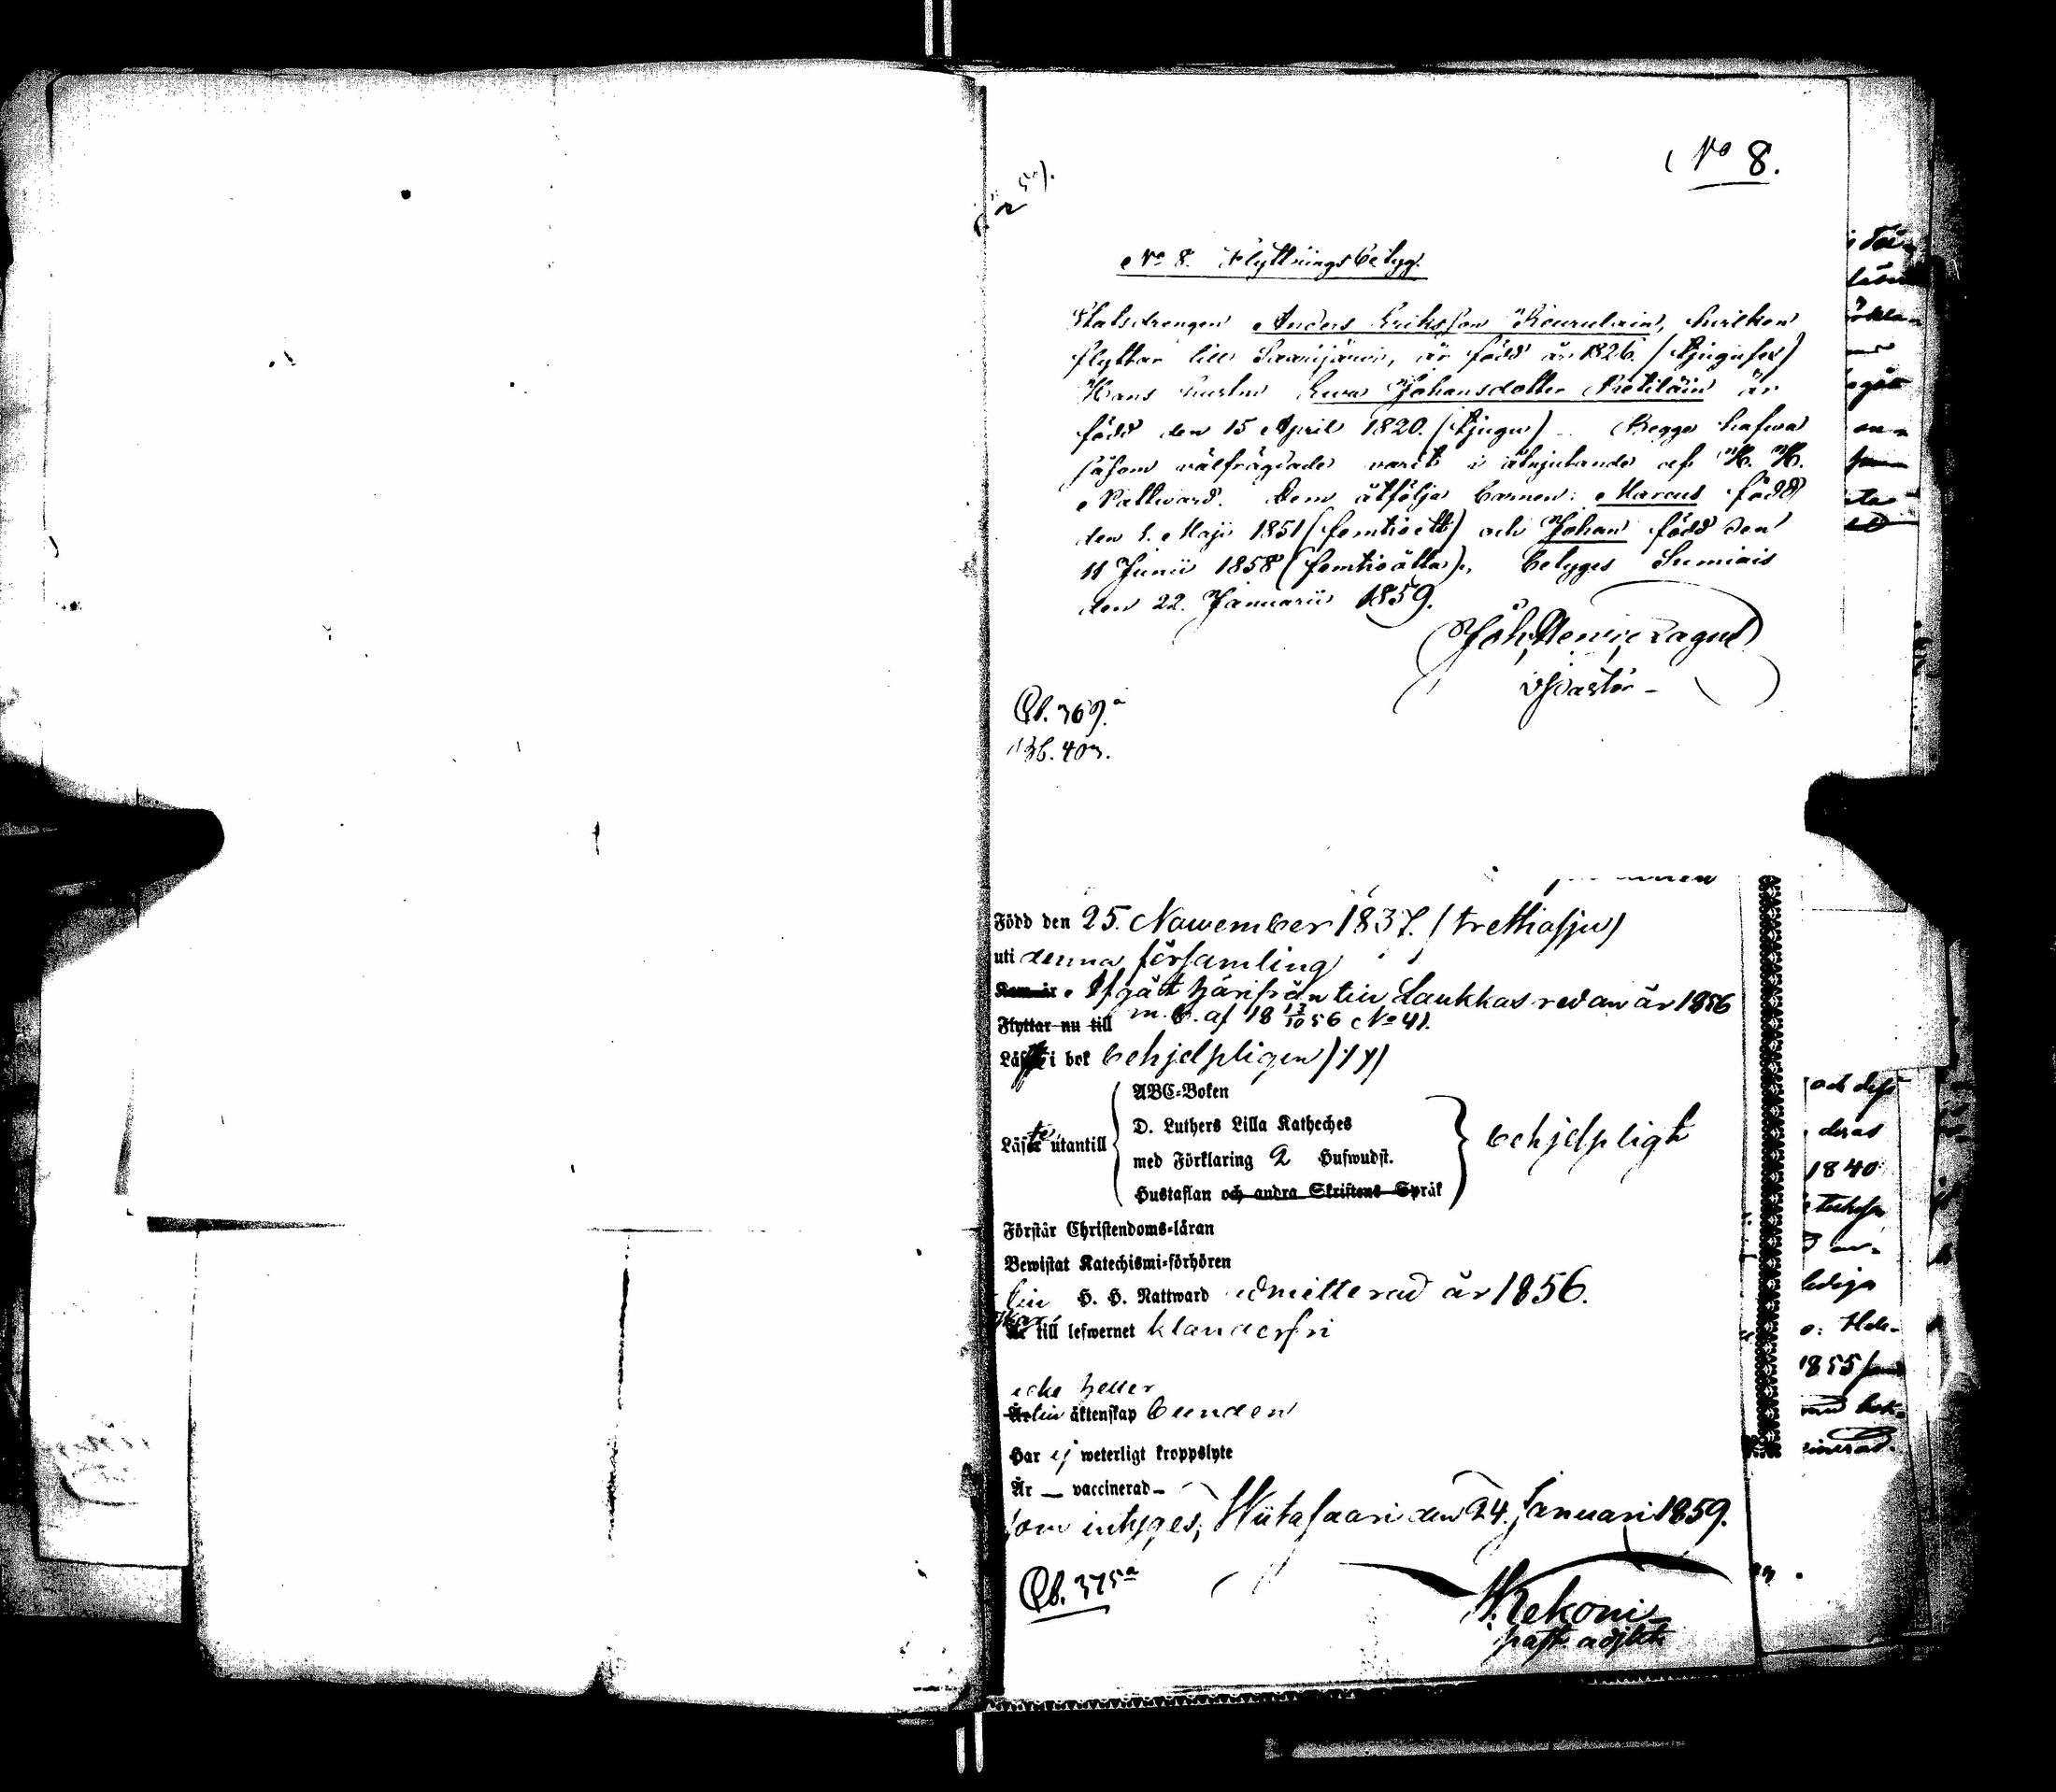 No 8.
No 8. Flyttningsbetyg.
Statsdrengen Anders Eriksson Keurulain, hvilken
flyttar till Saarijärvi, är född år 1826. (tjugusex)
Hans hustru Ewa Johansdotter Pietiläin är
född den 15 April 1820. (tjugu) Begge hafwa
såsom välfrägdade varit i åtnjutande af H. H.
Nattward. Dem åtfölja barnen: Marcus född
den 1. Maji 1851 (femtioett) och Johan född den
11 Junii 1858 (femtioåtta), betyges Sumiais
den 22. Januarii 1859.
Joh. Henric Lagus
Pastor
Qb. 369.a
Bb. 403.
Född den 25. Nowember 1837. (trettiosju)
uti denna församling
Kom år Afgått härifrån till Laukkas redan år 1856
Flyttar nu till m. b. af 18 13/10 56 No 41.
Läste i bok behjelpligen
ABC-Boken
D. Luthers Lilla Katheches
Läste utantill med Förklaring 2 Hufwudst. behjelpligt
Hustaflan och andra Skriftens Språk
Förstår Christendoms-läran
Bewistat Katechismi-förhören
till H. H. Nattward admitterad år 1856.
War till lefwernet klanderfri
icke heller
Är till äktenskap bunden
Har ej weterligt kroppslyte
Är — vaccinerad —
som intyges, Wiitasaari den 24. Januari 1859.
Qb. 375a
Kekoni
past. adjkt
och dess
deras
1840
1855